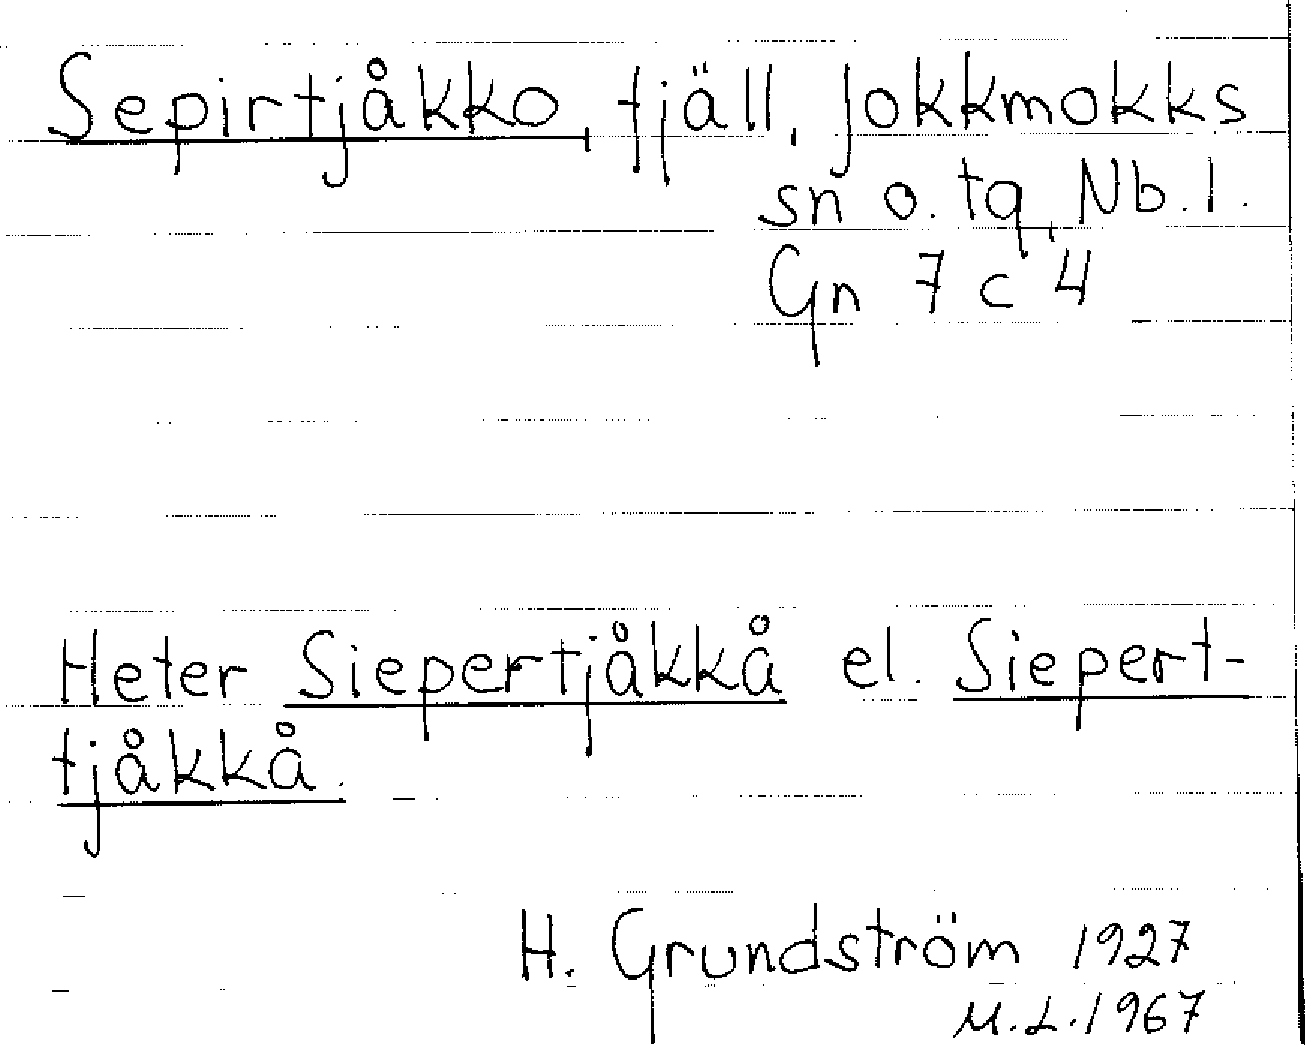 Sepirtjåkko, fjäll, Jokkmokks
sn o. tg, Nb. l.
Gn 7 c 4
Heter Siepertjåkkå el. Siepert-
tjåkkå.
H. Grundström 1927
M.L. 1967